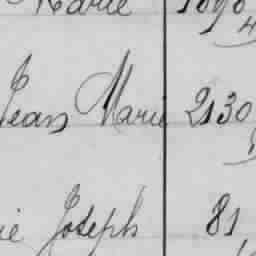 Marie 1090
Jean Marie 2130
ie Joseph 81